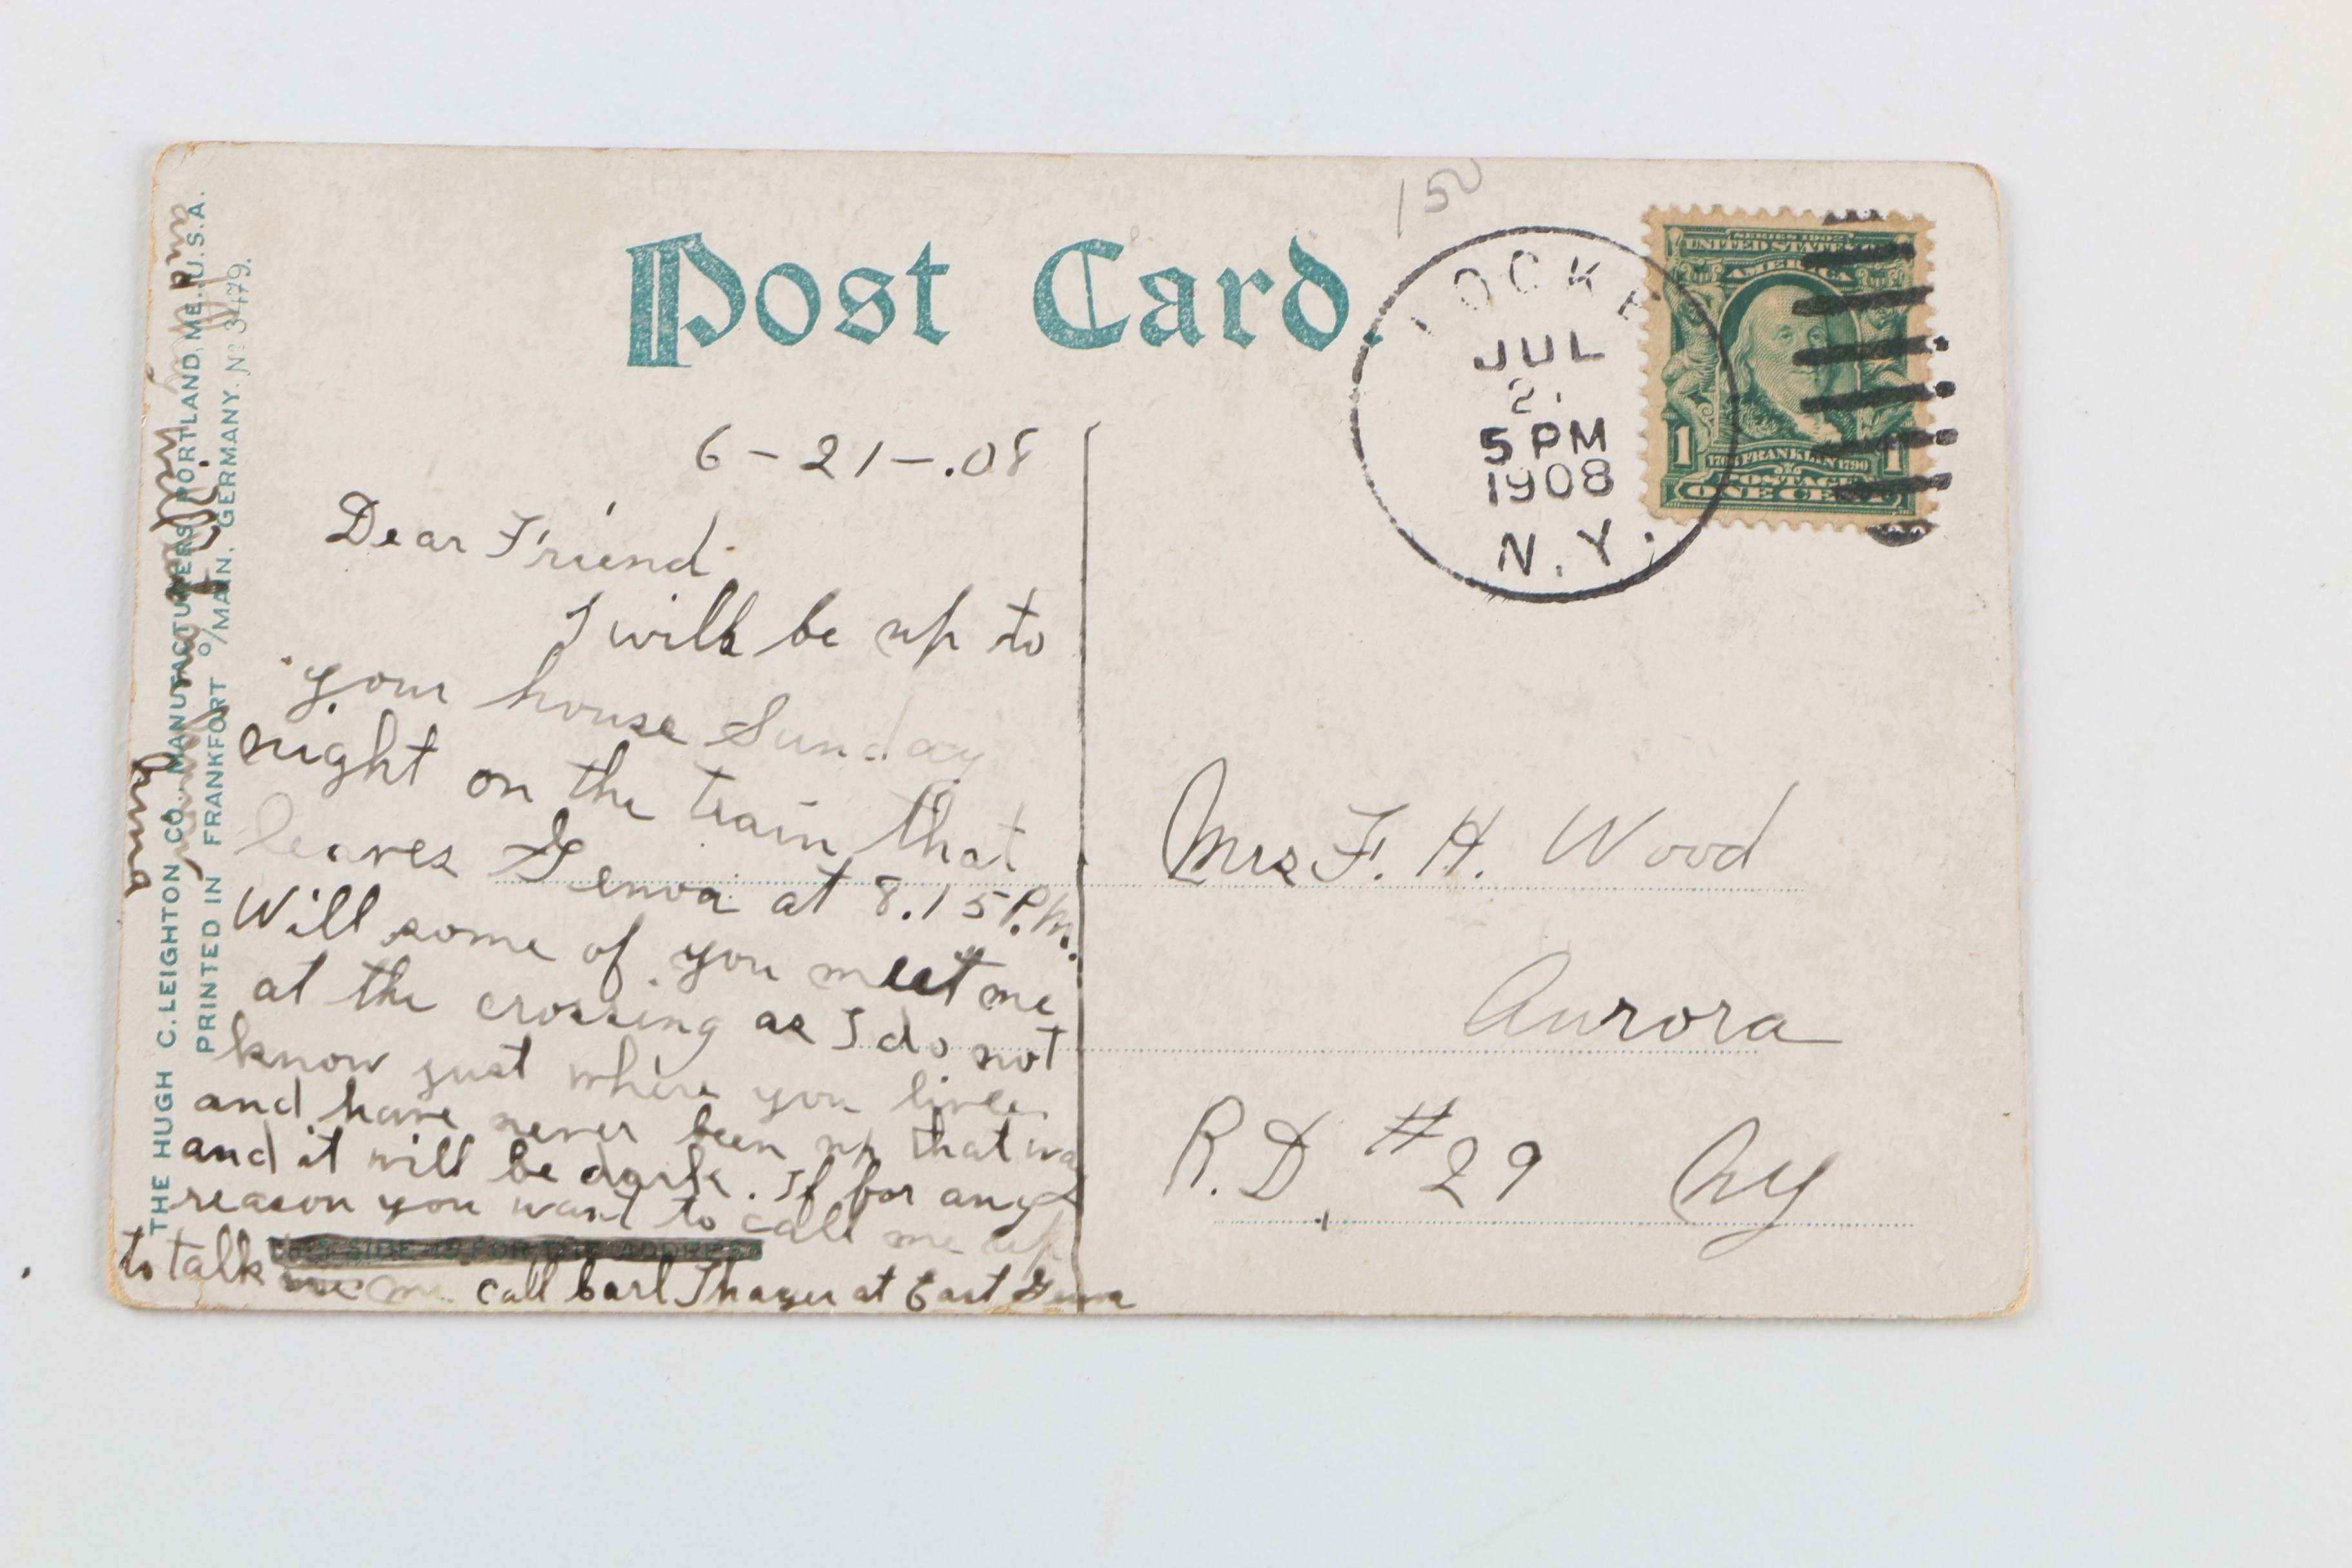 Post Card.
150
LOCKE
JUL
2.
5 PM
1908
N.Y.
SERIES 1902
UNITED STATES OF
AMERICA
1706 FRANKLIN 1790
1 1
POSTAGE
ONE CENT
6-21-.08
Dear Friend
I will be up to
your house Sunday
night on the train that
leaves Genva at 8.15 P.M.
Will some of you meet me
at the crossing as I do not
know just where you live
and have never been up that way
and it will be dark. If for any
reason you want to call me up
to talk me call Carl Thayer at East Genva
THIS SIDE IS FOR THE ADDRESS
and
will
Anna
Mrs F. H. Wood
Aurora
R.D. #29 NY
THE HUGH C. LEIGHTON CO., MANUFACTURERS, PORTLAND, ME., U.S.A.
PRINTED IN FRANKFORT o/MAIN, GERMANY. No 3479.